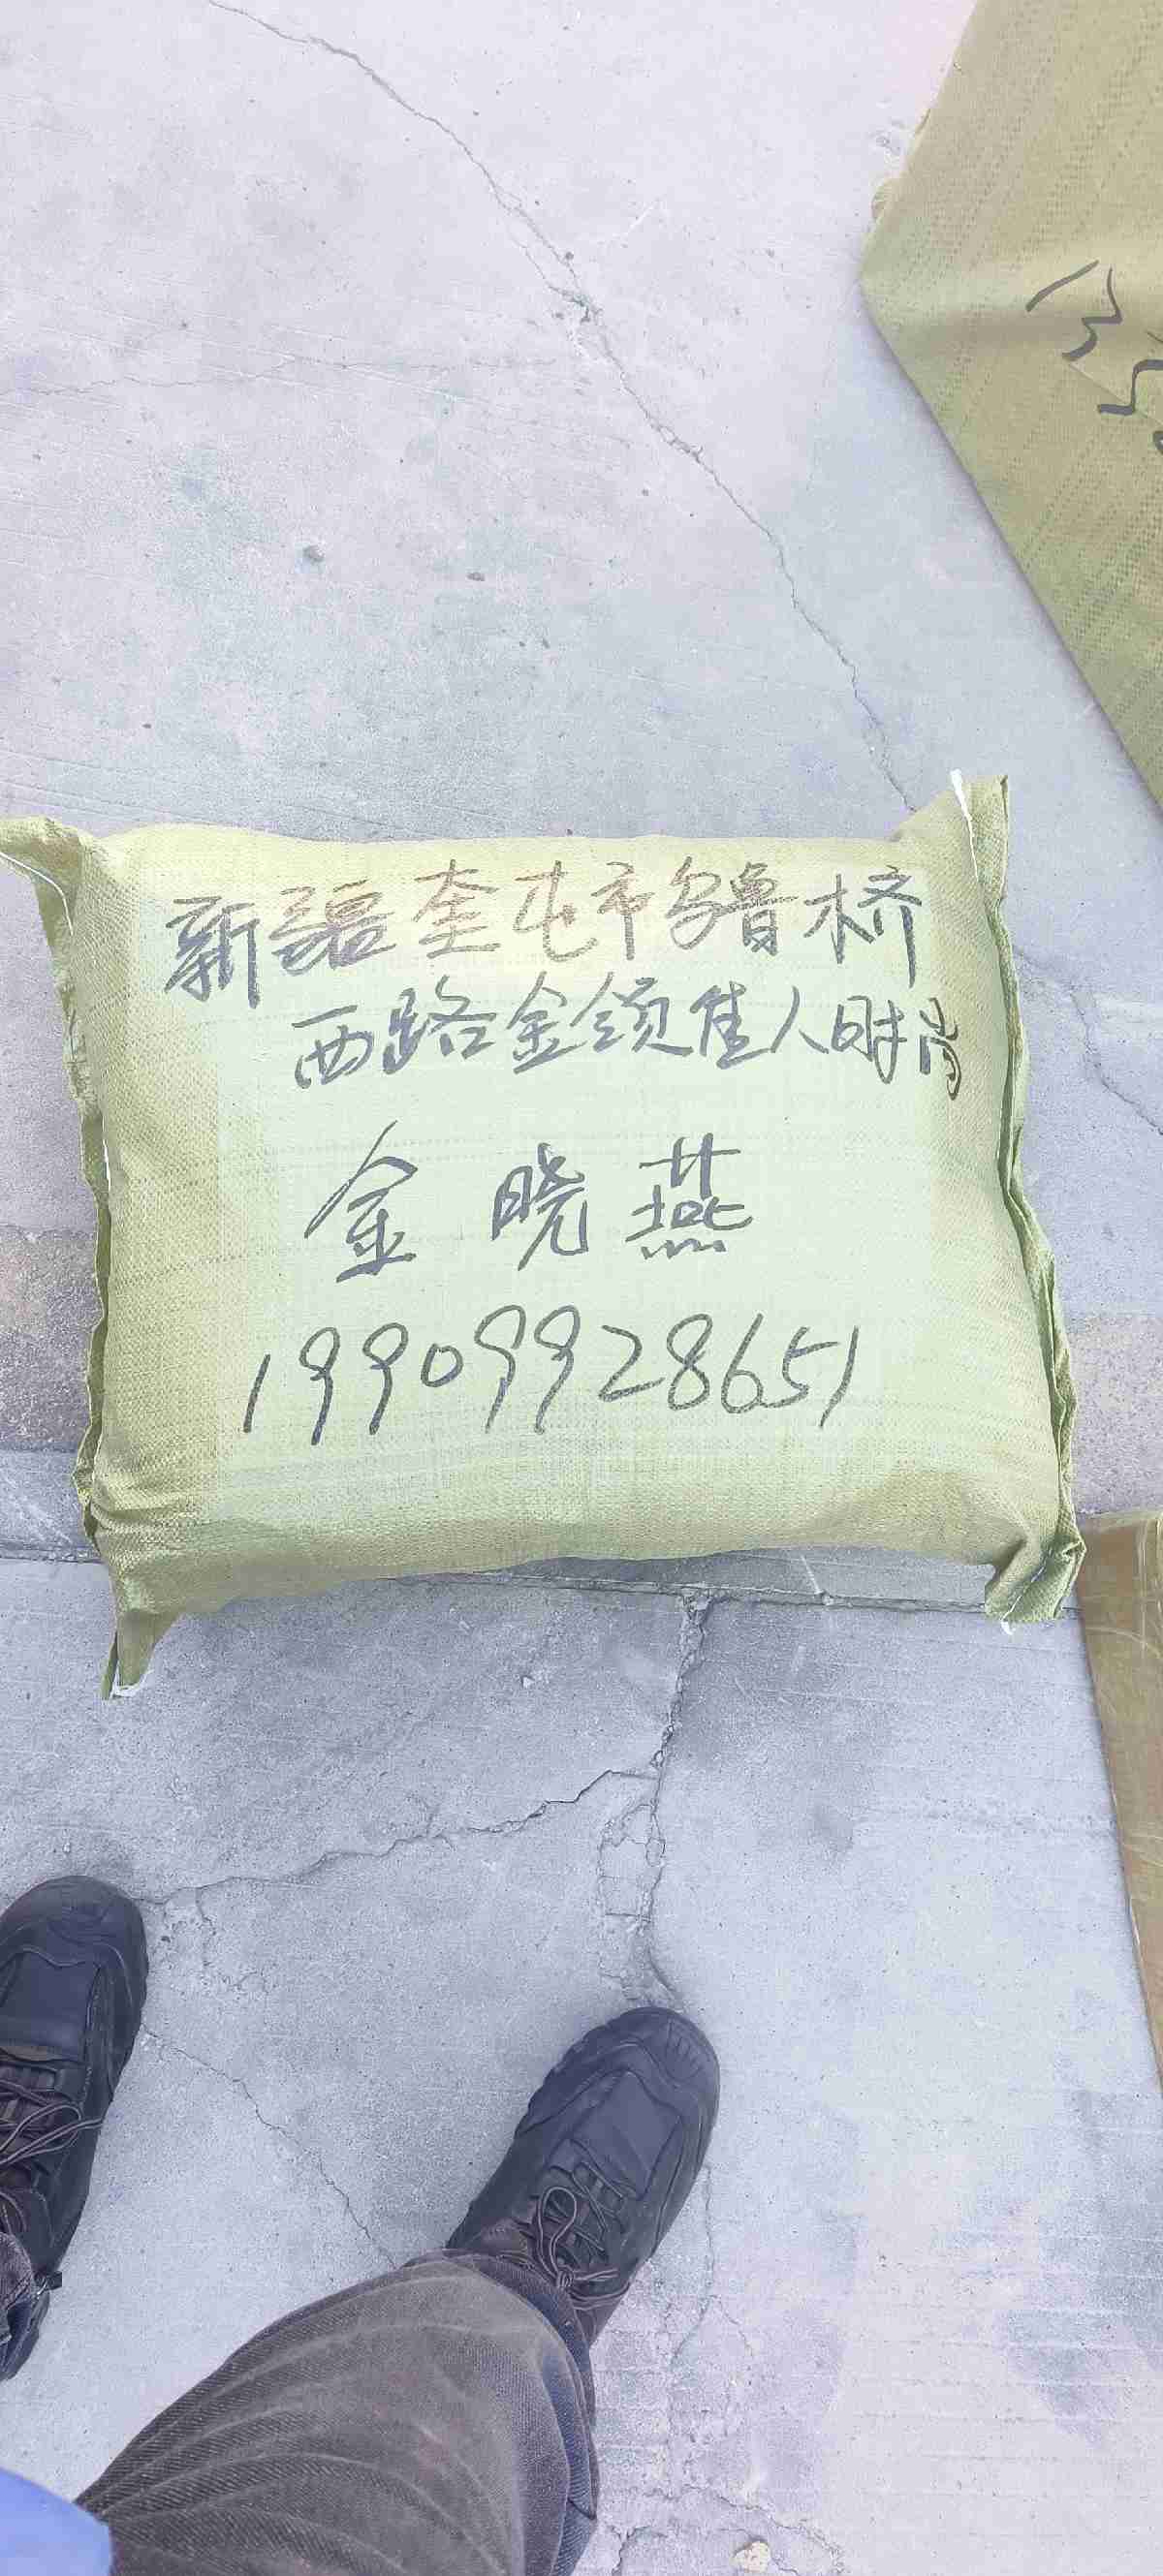 新疆奎屯市乌鲁木桥
西路金领佳人时尚
金晓燕
19909928651